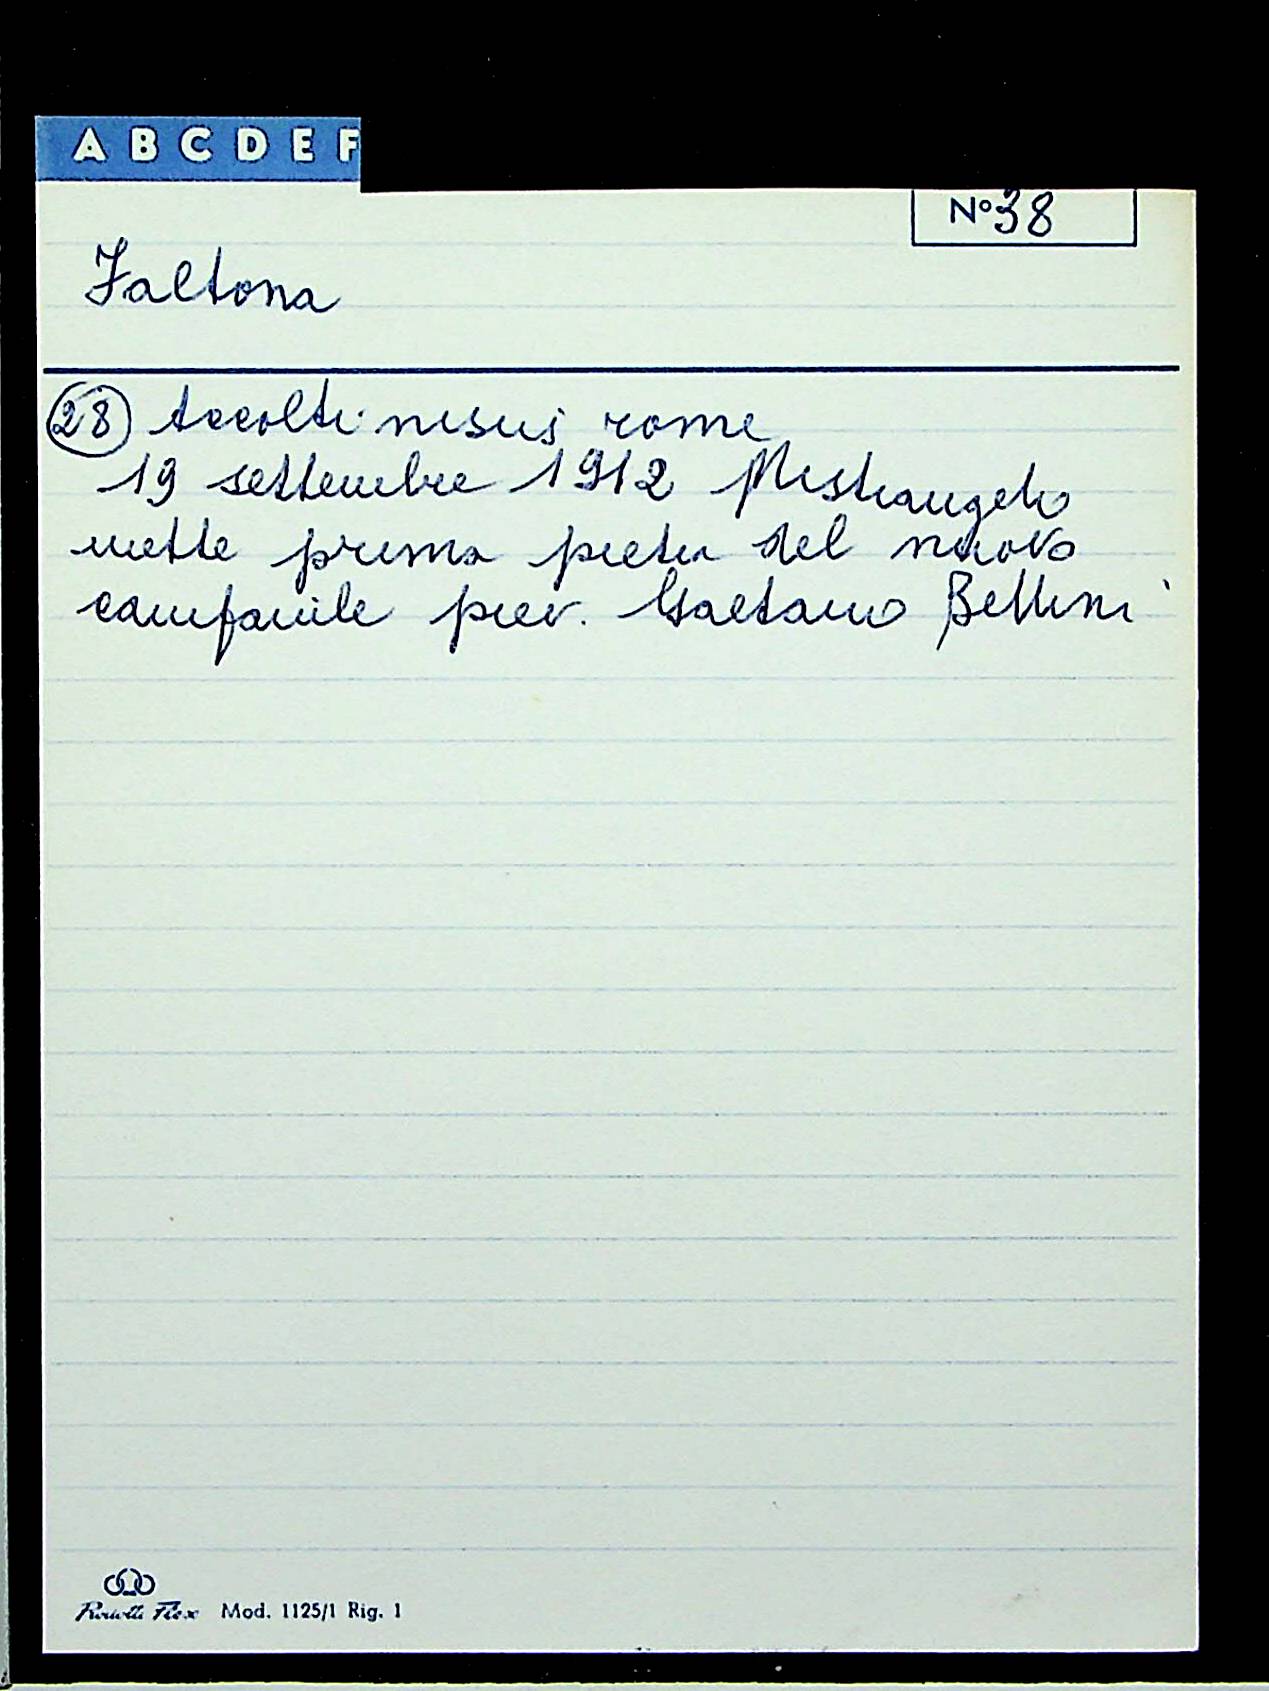 A B C D E F
N° 38
Faltona
28 Accolti
19 settembre 1912 Mistrangelo
mette prima pietra del nuovo
campanile piev. Gaetano Bellini
Mod. 1125/1 Rig. 1